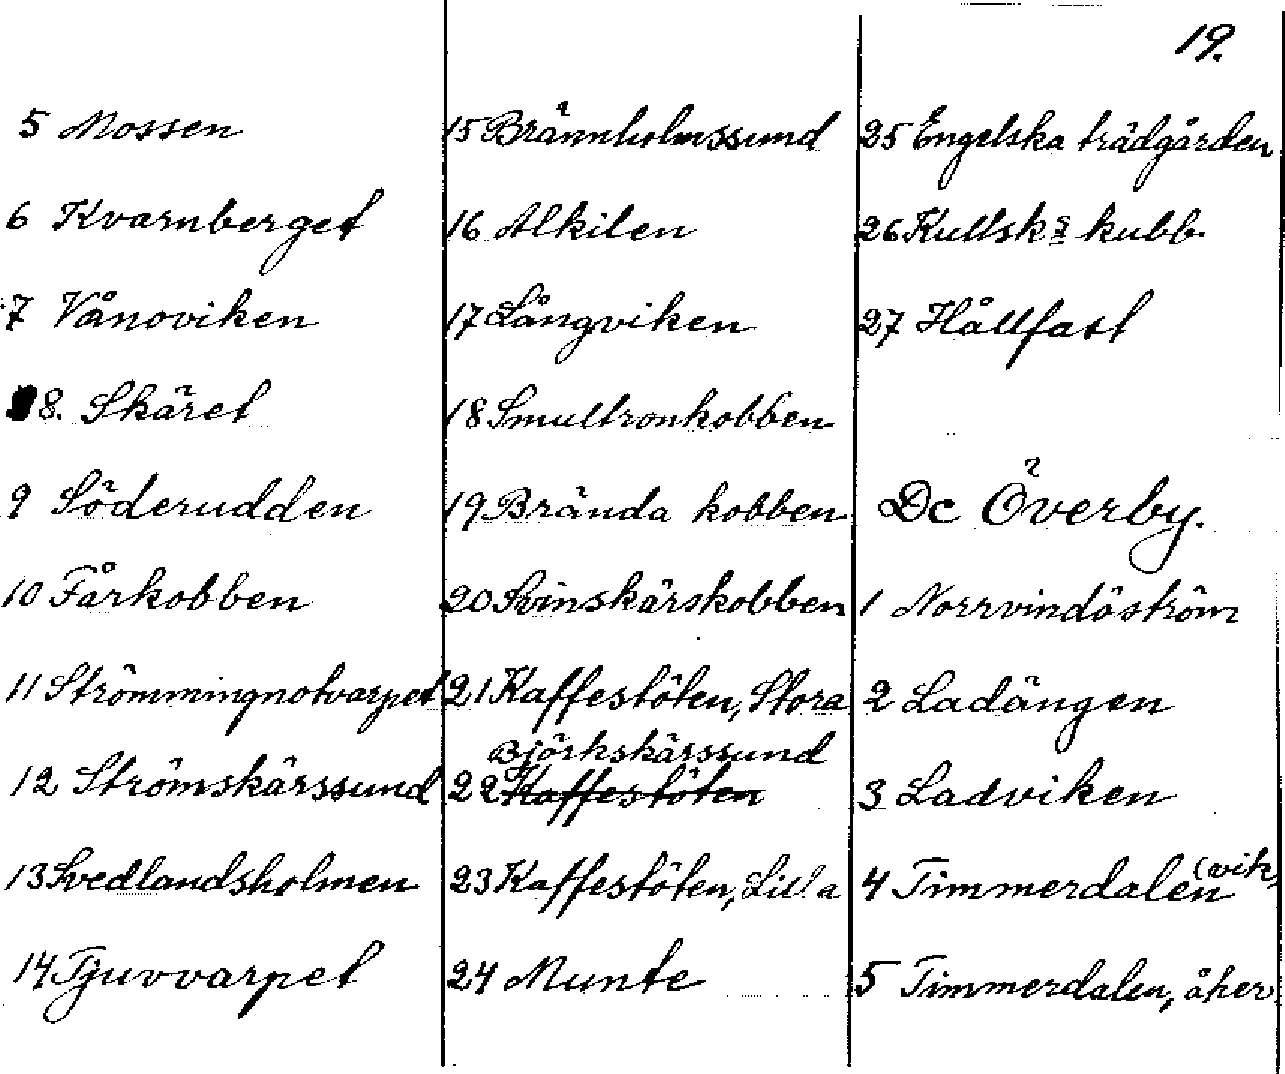 19.
5 Mossen
6 Kvarnberget
7 Vånoviken
8. Skäret
9 Söderudden
10 Fårkobben
11 Strömmingnotvarpet
12 Strömskärssund
13 Svedlandsholmen
14 Tjuvvarpet
15 Brännholmssund
16 Alkilen
17 Långviken
18 Smultronkobben
19 Brända kobben
20 Svinskärskobben
21 Kaffestöten, Stora
Björkskärssund
22 Kaffestöten
23 Kaffestöten, Lilla
24 Munte
25 Engelska trädgården
26 Kullsks kubb.
27 Hållfast
Dc Överby.
1 Norrvindöström
2 Ladängen
3 Ladviken
4 Timmerdalen (vik)
5 Timmerdalen, åker